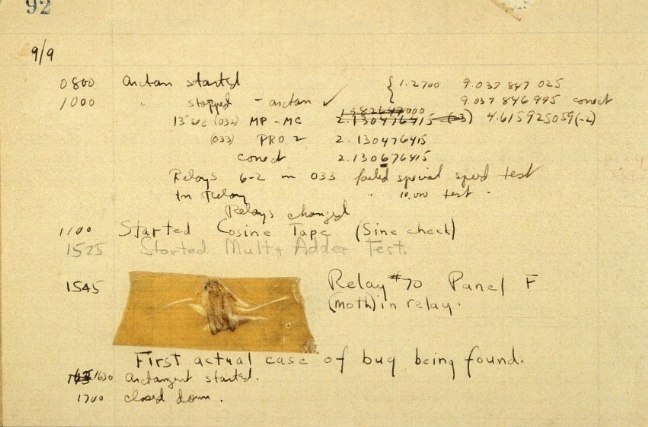 92
9/9
0800 antan started { 1.2700 9.037 847 025
1000 " stopped - antan ✓ 9.037 846 995 conect
13" uc (032) MP - MC 2.130476415 (-3) 4.615925059(-2)
(033) PRO 2 2.130476415
conect 2.130676415
Relays 6-2 in 033 failed special speed test
In Relay " 10,000 test .
Relays changed
1100 Started Cosine Tape (Sine check)
1525 Started Mult + Adder Test.
1545 Relay #70 Panel F
(moth) in relay.
First actual case of bug being found.
1630 antangent started.
1700 closed down.